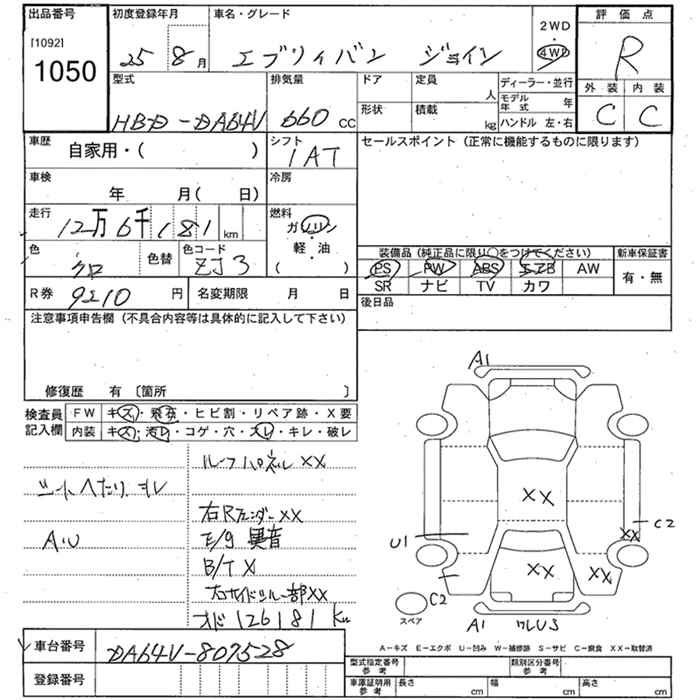 出品番号 初度登録年月 車名・グレード 2WD ・ 4WD 評価点
[1092]
1050 25 8月 エブリィバン ジョイン R
型式 排気量 ドア 定員 人 ディーラー・並行 外装 内装
HBD-DA64V 660 cc 形状 積載 kg モデル年式 年 C C
ハンドル 左・右
車歴 自家用・( ) シフト 1AT セールスポイント (正常に機能するものに限ります)
車検 年 月( 日) 冷房
走行 12万6千181 km 燃料 ガソリン ・ 軽・油 ( )
色 クロ 色替 色コード ZJ3
装備品 (純正品に限り○をつけてください) 新車保証書
PS PW ABS エアB AW 有・無
SR ナビ TV カワ
R券 9210 円 名変期限 月 日
後日品
注意事項申告欄 (不具合内容等は具体的に記入して下さい)
修復歴 有 〔箇所 〕
検査員記入欄 FW キズ・飛石・ヒビ割・リペア跡・X要
内装 キズ・汚レ・コゲ・穴・スレ・キレ・破レ
ルーフパネルXX
シートヘタリ、ヨレ
右RフェンダーXX
A・U E/g 異音
B/T X
右サイドシル一部XX
オド 126181 km
A1
XX
C2
XX
U1
XX XX
C2
スペア
A1 ワレUS
A-キズ E-エクボ U-凹み W-補修跡 S-サビ C-腐食 XX-取替済
車台番号 DA64V-807528
登録番号
型式指定番号 参考 類別区分番号 参考
車庫証明用 参考 長さ cm 幅 cm 高さ cm